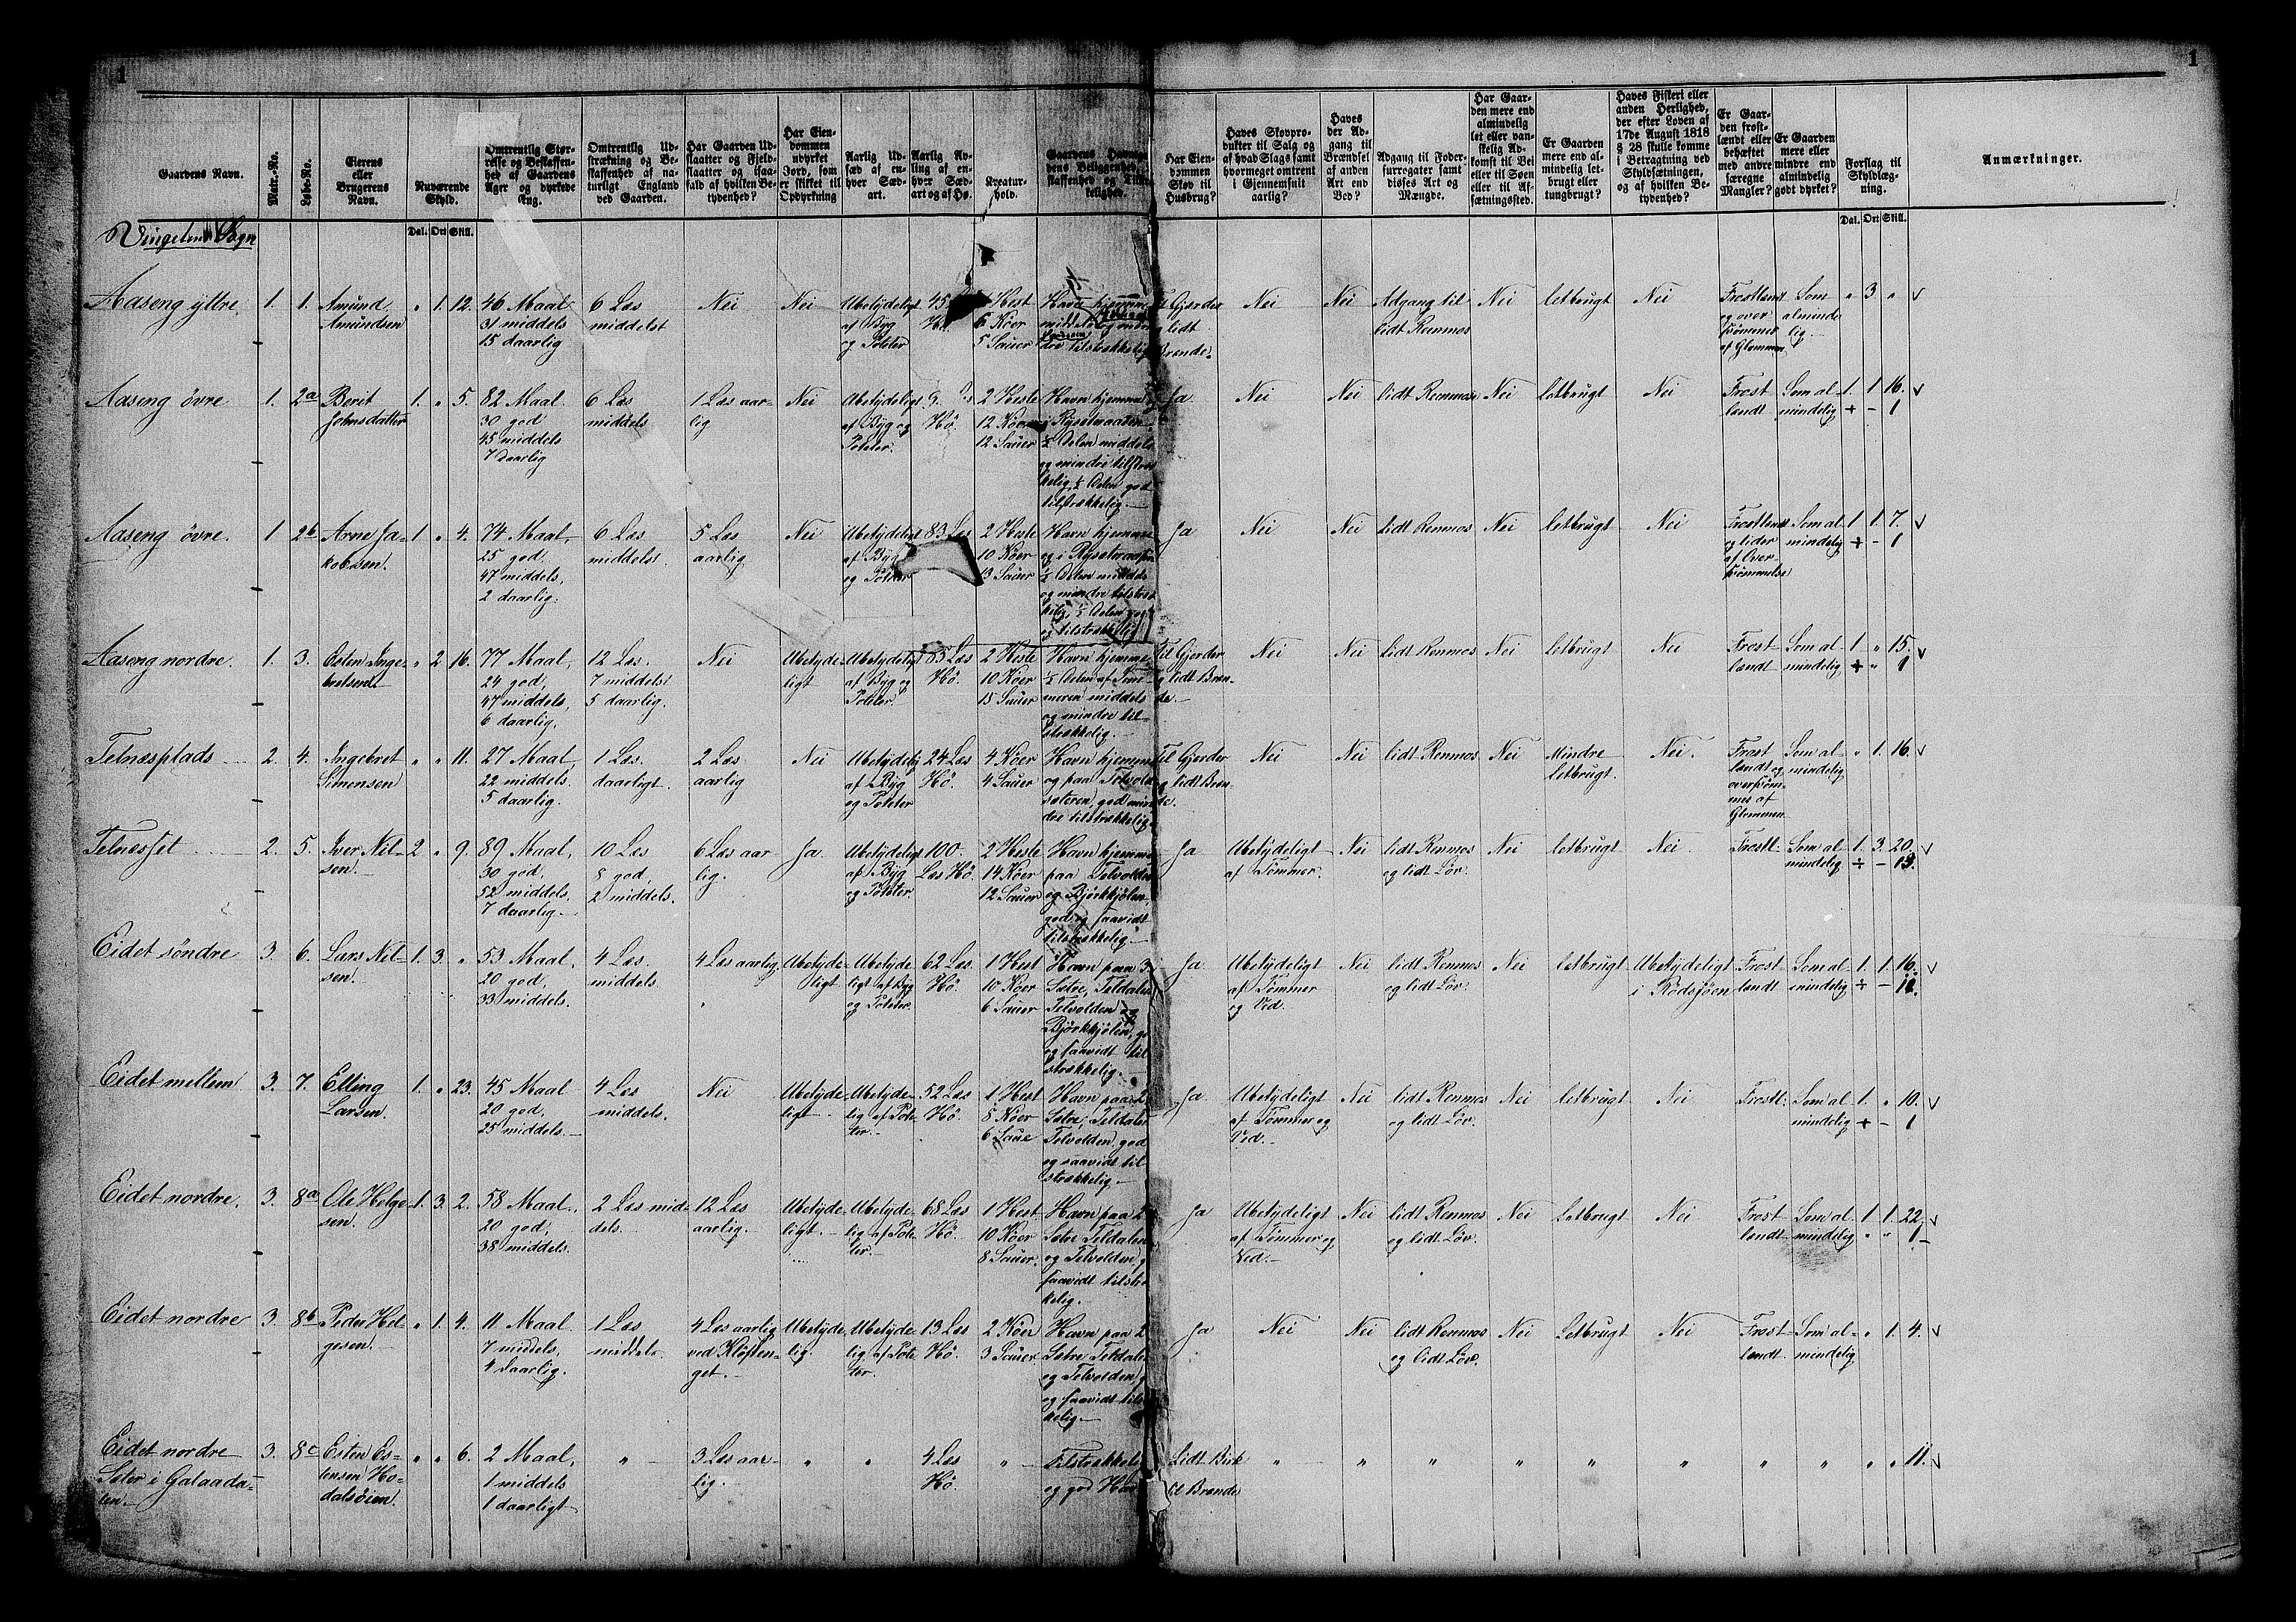 1
1
Gaardens Navn.
Matr.-No.
Løbe-No.
Eierens eller Brugerens Navn.
Nuværende Skyld.
Omtrentlig Størrelse og Beskaffenhed af Gaardens Ager og dyrkede Eng.
Omtrentlig Udstrækning og Beskaffenhed af naturligt England ved Gaarden.
Har Gaarden Udslaatter og Fjeldslaatter og isaafald af hvilken Betydenhed?
Har Eiendommen udyrket Jord, som er skikket til Opdyrkning
Aarlig Udsæd af enhver Sædart.
Aarlig Avling af enhver Sædart og af Hø.
Kreaturhold.
Gaardens Beliggenhed
Har Eiendommen Skov til Husbrug?
Haves Skovprodukter til Salg og af hvad Slags samt hvormeget omtrent i Gjennemsnit aarlig?
Haves der Adgang til Brændsel af anden Art end Ved?
Adgang til Fodersurrogater samt disses Art og Mængde.
Har Gaarden mere end almindelig let eller vanskelig Adkomst til Vei eller til Søen eller til Afsætningssted.
Er Gaarden mere end almindelig letbrugt eller tungbrugt?
Haves Fiskeri eller anden Herlighed, der efter Loven af 17de August 1818 § 28 skulle komme i Betragtning ved Skyldsætningen, og af hvilken Betydenhed?
Er Gaarden frostlændt eller behæftet med andre særegne Mangler?
Er Gaarden mere eller mindre end almindelig godt dyrket?
Forslag til Skyldlægning.
Anmærkninger.
Dal. Ort Skill.
Dal. Ort Skill.
Vingelens Sogn
Aaseng yttre 1. 1. Amund Amundsen " 1. 12. 46 Maal 31 middels 15 daarlig 6 Læs middelst Nei Nei Ubetydeligt af Byg og Poteter 45 Hest 6 Køer 5 Sauer Havn hjemme tilstrækkelig Til Gjerder og lidt Brænde. Nei Nei Adgang til lidt Renmos Nei letbrugt Nei Frostlændt og oversvømmes af Glommen Som almindelig " 3. "
Aaseng øvre 1. 2a Berit Johnsdatter 1. " 5. 82 Maal 30 god 45 middels 7 daarlig 6 Læs middels 1 Læs aarlig Nei Ubetydeligt af Byg og Poteter. Hø. 2 Heste 12 Køer 12 Sauer Havn hjemme ½ Delen middels og mindre tilstrækkelig, ½ Delen god tilstrækkelig. Ja Nei Nei lidt Renmos Nei Letbrugt Nei Frostlændt Som almindelig 1. 1. 16. + - 1
Aaseng øvre. 1 2b Arne Jakobsen. 1 " 4. 74 Maal, 25 god, 47 middels, 2 daarlig. 6 Læs middelst. 5 Læs aarlig Nei Ubetydeligt af Byg og Poteter 83 Læs 2 Heste 10 Køer 13 Sauer Havn hjemme ½ Delen middels og mindre tilstrækkelig, ½ Delen god og tilstrækkelig Ja Nei Nei lidt Renmos Nei letbrugt Nei Frostlændt og lider af Oversvømmelse Som almindelig 1 1. 7. + - 1
Aaseng nordre. 1. 3. Esten Ingebretsen " 2 16. 77 Maal, 24 god, 47 middels, 6 daarlig. 12 Læs. 7 middelst 5 daarlig. Nei Ubetydeligt Ubetydeligt af Byg og Poteter. 85 Læs Hø. 2 Heste 10 Køer 15 Sauer Havn hjemme ½ Delen af middels og mindre tilstrækkelig. Til Gjerder og lidt Brænde. Nei Nei lidt Renmos Nei letbrugt Nei Frostlændt Som almindelig 1 " 15. + " 1
Telnesplads 2. 4. Ingebret Simensen " " 11. 27 Maal, 22 middels 5 daarlig. 1 Læs. daarligt. 2 Læs aarlig Nei Ubetydelig af Byg og Poteter 24 Læs Hø. 4 Køer 4 Sauer Havn hjemme og paa tilstrækkelig. Til Gjerder og lidt Brænde. Nei Nei lidt Renmos Nei Mindre letbrugt. Nei. Frostlændt og oversvømmes af Glommen Som almindelig " 1. 16.
Telneset 2. 5. Iver Nilsen. 2 " 9. 89 Maal, 30 god, 52 middels, 7 daarlig. 10 Læs 8 god, 2 middels. 6 Læs aarlig. Ja Ubetydeligt af Byg og Poteter 100 Læs Hø. 2 Heste 14 Køer 12 Sauer Havn hjemme paa Telvolden og Bjørkkjølen, god og saavidt tilstrækkelig. Ja Ubetydeligt af Tømmer. Nei lidt Renmos og lidt Løv. Nei letbrugt Nei. Frostl. Som almindelig 1. 3. 20.
Eidet søndre 3. 6. Lars Nilsen. 1. 3. " 53 Maal, 20 god, 33 middels. 4 Læs. middels. 4 Læs aarlig. Ubetydeligt Ubetydeligt af Byg og Poteter. 62 Læs Hø. 1 Hest 10 Køer 6 Sauer Havn paa 3 Sætre, Teldalen Telvolden og Bjørkkjølen, og saavidt tilstrækkelig. Ja Ubetydeligt af Tømmer og Ved. Nei lidt Renmos og lidt Løv. Nei letbrugt Ubetydeligt i Rødsjøen Frostlændt Som almindelig 1. 1. 16.
Eidet mellem 3. 7. Elling Larsen. 1. " 23. 45 Maal 20 god, 25 middels. 4 Læs middels. Nei Ubetydeligt Ubetydelig af Poteter. 52 Læs Hø 1 Hest 8 Køer 6 Saue Havn paa 2 Sætre, Teldalen Telvolden, god og saavidt tilstrækkelig. Ja Ubetydeligt af Tømmer og Ved. Nei lidt Renmos og lidt Løv. Nei letbrugt Nei Frostl. Som almindelig 1. " 10. + - 1
Eidet nordre. 3. 8a Ole Helgesen. 1. 3. 2. 58 Maal, 20 god, 38 middels. 2 Læs middels. 12 Læs aarlig. Ubetydeligt. Ubetydelig af Poteter. 68 Læs Hø. 1 Hest 10 Køer 8 Sauer. Havn paa 2 Sætre Teldalen og Telvolden, saavidt tilstrækkelig. Ja Ubetydeligt af Tømmer og Ved. Nei lidt Renmos og lidt Løv. Nei Letbrugt Nei Frostlændt Som almindelig 1 1. 22. " " 1
Eidet nordre 3. 8b Peder Helgesen. " 1. 4. 11 Maal 7 middels, 4 daarlig. 1 Læs middels 4 Læs aarlig ved Kløftenget. Ubetydelig. Ubetydelig af Poteter. 13 Læs Hø. 2 Køer 3 Sauer Havn paa 2 Sætre Teldalen og Telvolden, og saavidt tilstrækkelig. Ja Nei Nei lidt Renmos og lidt Løv. Nei Letbrugt Nei Frostlændt. Som almindelig " 1. 4.
Eidet nordre Sæter i Galaadalen. 3. 8c Esten Estensen Hodalsøien. " " 6. 2 Maal, 1 middels 1 daarligt " 3 Læs aarlig. " " 4 Læs Hø. " Tilstrækkelig og god Havn Lidt Birk til Brænde " " " " " " " " " " 11.